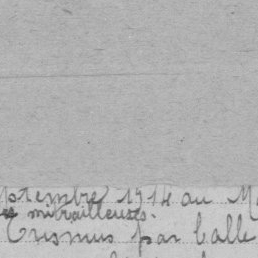 ptembre 1914 au M
es mitrailleuses.
Trismus par balle